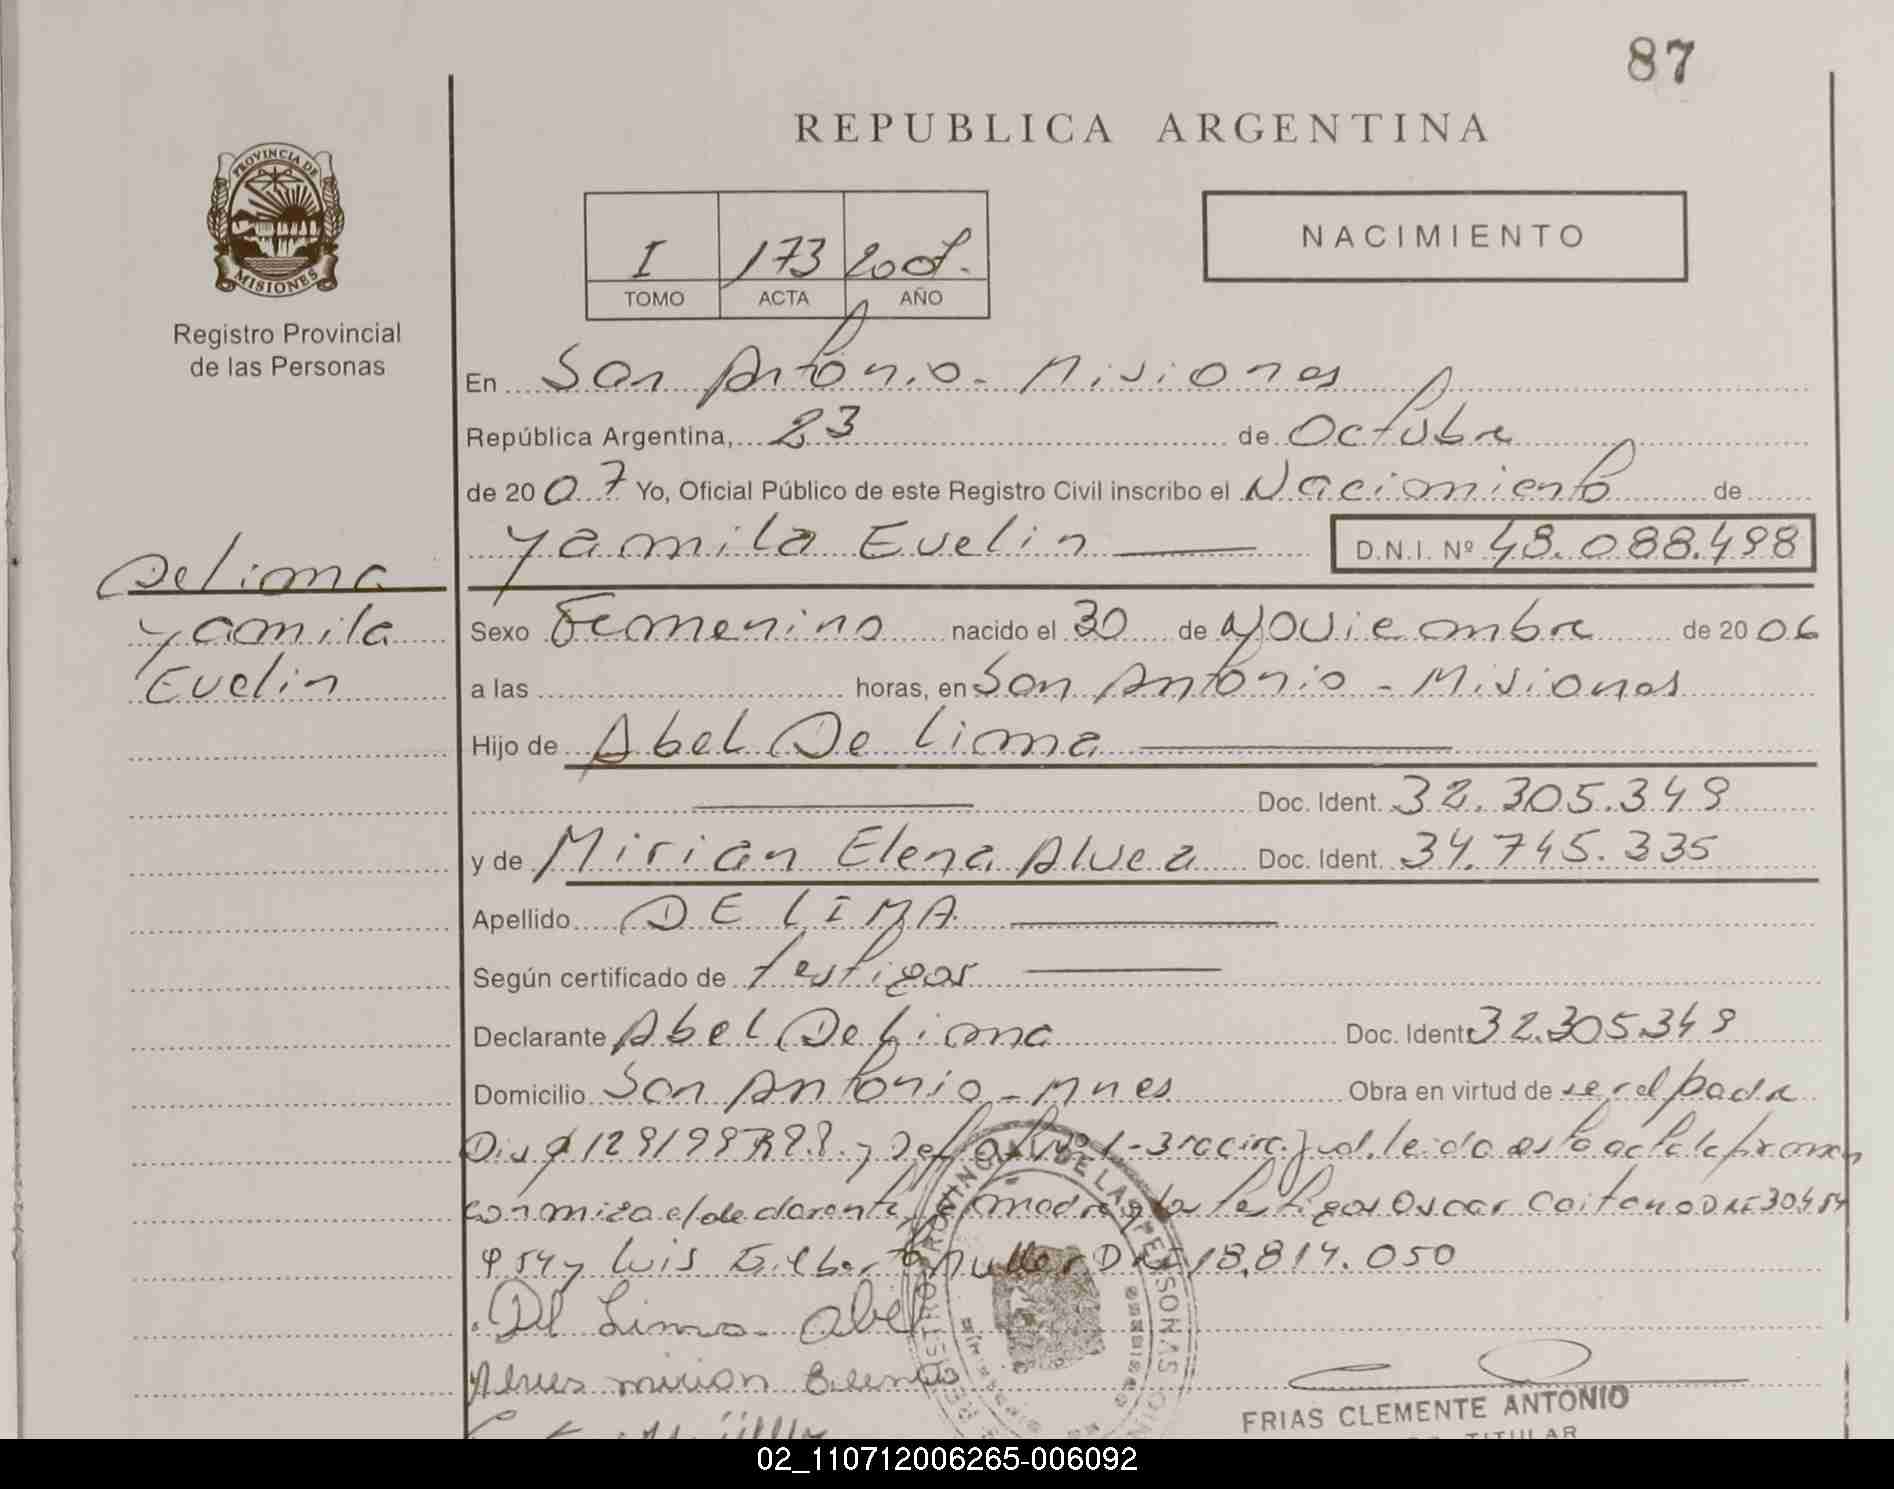 87
REPUBLICA ARGENTINA
PROVINCIA DE
MISIONES
Registro Provincial
de las Personas
I 173 2007.
TOMO ACTA AÑO
NACIMIENTO
En San Antonio - Misiones
República Argentina, 23 de Octubre
de 2007 Yo, Oficial Público de este Registro Civil inscribo el Nacimiento de
Yamila Evelin D.N.I. Nº 48.088.498
De lima
Yamila
Evelin
Sexo Femenino nacido el 30 de Noviembre de 2006
a las horas, en San Antonio - Misiones
Hijo de Abel De lima
Doc. Ident. 32.305.349
y de Mirian Elena Alvea Doc. Ident. 34.745.335
Apellido DE LIMA
Según certificado de testigos
Declarante Abel De Lima Doc. Ident. 32.305.349
Domicilio San Antonio - Mnes Obra en virtud de ser el padre
leida esta acta la firman
conmigo el declarante, madre y los testigos Oscar
y Luis 18.814.050
De Lima Abel
Alves mirian Elena
REGISTRO PROVINCIAL DE LAS PERSONAS
FRIAS CLEMENTE ANTONIO
TITULAR
02_110712006265-006092